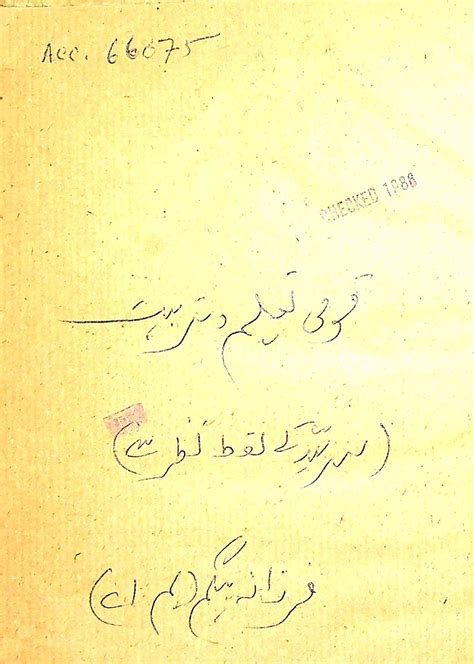 Acc. 66075
CHECKED 1988
قومی تعلیم و تربیت
(سرسید کے نقطۂ نظر سے)
فرزانہ بیگم (ایم اے)